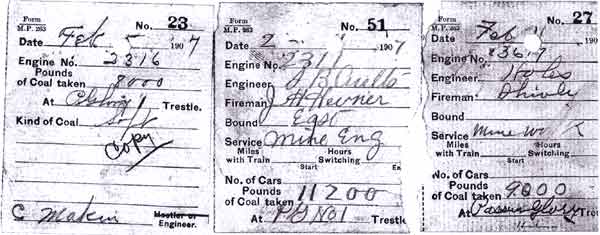 Form
M.P. 263
No. 23
Date Feb 1907
Engine No. 2316
Pounds
of Coal taken 8000
At Trestle.
Kind of Coal Soft
Copy
C Makin Hostler or
Engineer.
Form
M.P. 263
No. 51
Date 2 1907
Engine No. 2311
Engineer J B
Fireman J H Hevner
Bound East
Service Mine Eng
Miles Hours
with Train Switching
Start En
No. of Cars
Pounds
of Coal taken 11200
At PG No1 Trestle
Form
M.P. 263
No. 27
Date Feb 11 1907
Engine No. 2367
Engineer
Fireman Shively
Bound
Service Mine
Miles Hours
with Train Switching
Start
No. of Cars
Pounds
of Coal taken 9000
At Tre